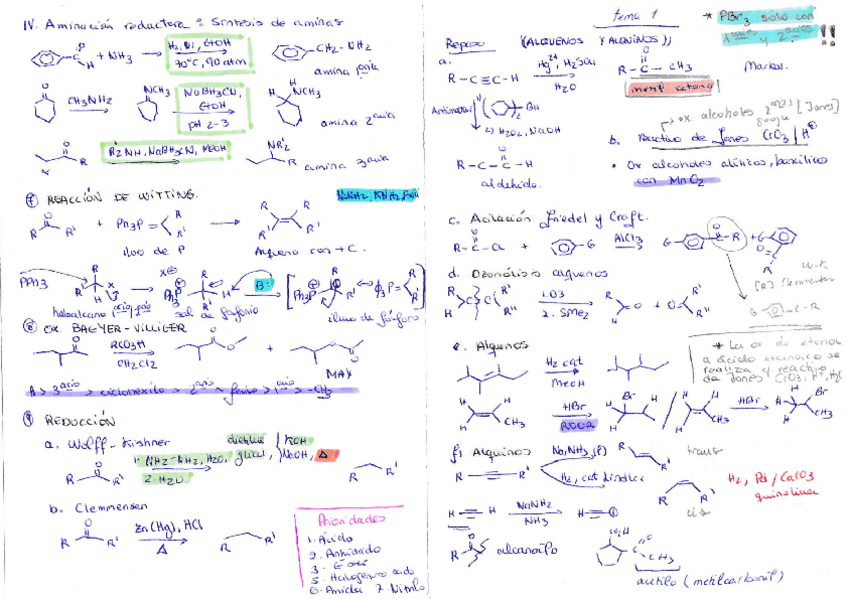 IV. Aminación reductora: Síntesis de aminas
+ NH3 H2, Ni, EtOH CH2-NH2
70°C, 90 atm
amina 1aria
CH3NH2 NCH3 NaBH3CN, EtOH NCH3
pH 2-3 amina 2aria
R2NH, NaBH3CN, MeOH NR2
amina 3aria
⑦ REACCIÓN DE WITTING.
R R' + Ph3P= R R'
iluo de P Alqueno con + C.
PPh3
sal de fosfonio B:- iluro de fósforo
⑧ OX. BAEYER-VILLIGER
RCO3H
CH2Cl2
MAY
H > 3ario > ciclohexilo > 2ario ~ fenilo > 1ario > -CH3
⑨ REDUCCIÓN
a. Wolff-Kishner
1. NH2-NH2, H2O, KOH
glicol, NaOH, Δ
2. H2O
b. Clemmensen
Zn(Hg), HCl
Δ
Prioridades
1. Ácido
2. Anhidrido
3. Éster
5. Halogenuro acido
6. Amida 7. Nitrilo
Tema 1
* PBr3 solo con
1arios y 2arios !!
Repaso (ALQUENOS Y ALQUINOS)
a.
R-C≡C-H Hg2+, H2SO4 R-C-CH3 Markov.
H2O metil cetona
BH
2) H2O2, NaOH
R-C-C-H
aldehído.
ox. alcoholes
b. Reactivo de Jones CrO3 | H⊕
• Ox alcoholes alílicos, bencílico
con MnO2
c. Acilación Friedel y Craft.
R-C-Cl + G AlCl3
d. Ozonólisis alquenos
1. O3
2. SMe2
* La ox de etanol
a ácido etanoico se
realiza y reactivo
de Jones CrO3, H+, H2O
e. Alquenos
H2 cat
MeOH
HBr
ROOR
HBr
f) Alquinos
Na, NH3 (l) trans
H2, cat Lindlar
cis
H2, Pd/CaCO3
quinolina
NaNH2
NH3
alcanoilo
acetilo (metilcarbonil)